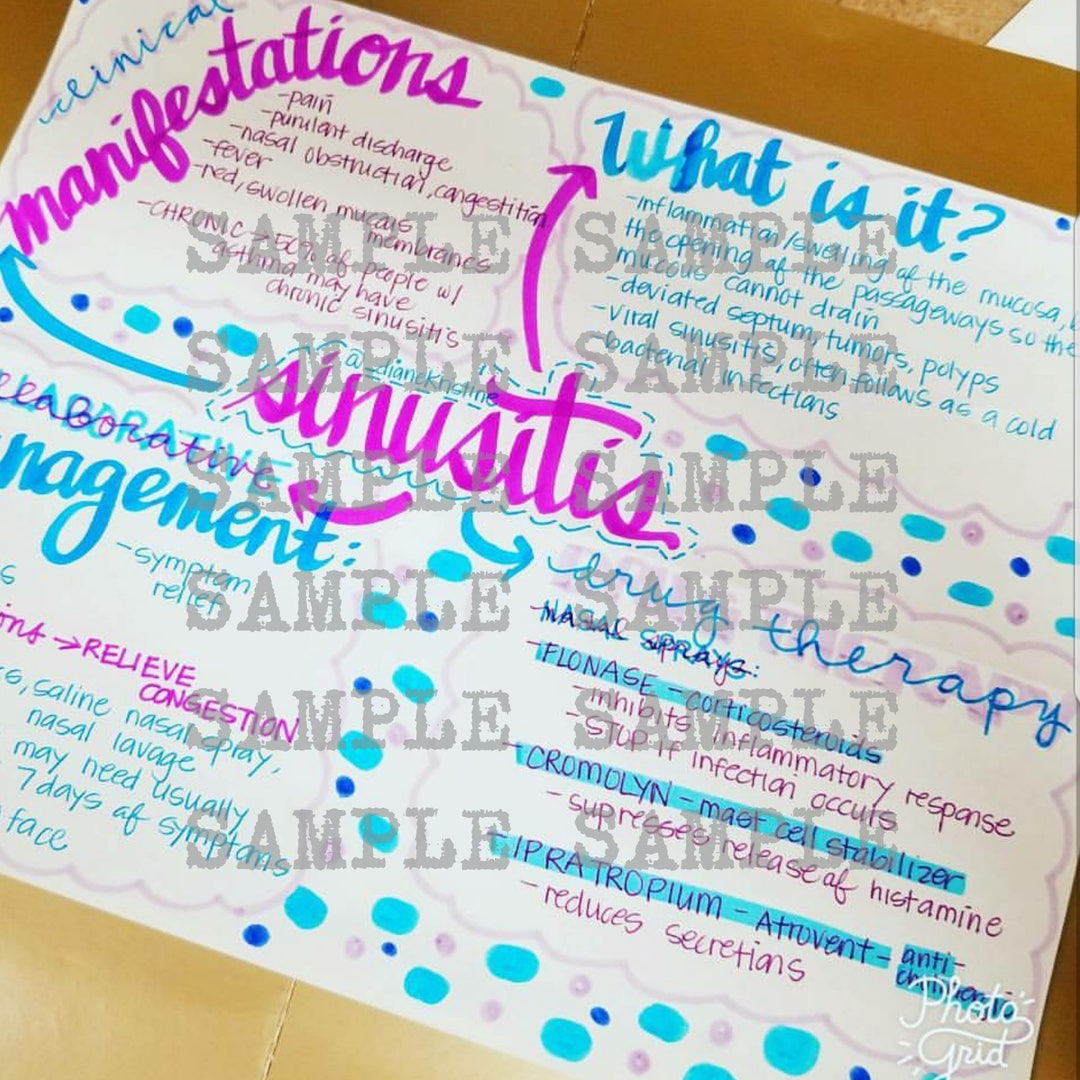 clinical
manifestations
-pain
-purulent discharge
-nasal obstruction, congestition
-fever
-red, swollen mucais
membranes
-CHRONIC → 50% of people w/
asthma may have
chronic sinusitis
What is it?
-inflammation/swelling of the mucosa,
the opening of the passageways so the
mucous cannot drain
-deviated septum, tumors, polyps
-viral sinusitis, often follows as a cold
-bacterial infections
@_dianekristine
sinusitis
collaborative
COLLABORATIVE
management:
-symptom
relief
→ RELIEVE
CONGESTION
saline nasal spray,
nasal lavage
may need usually
7 days of symptoms
face
drug therapy
NASAL SPRAYS:
-FLONASE - corticosteroids
-inhibits inflammatory response
-STOP if infection occurs
-CROMOLYN - mast cell stabilizer
-supresses release of histamine
-IPRATROPIUM - Atrovent - anti-
cholinergic
-reduces secretions
SAMPLE SAMPLE
SAMPLE SAMPLE
SAMPLE SAMPLE
SAMPLE SAMPLE
SAMPLE SAMPLE
SAMPLE SAMPLE
Photo
Grid